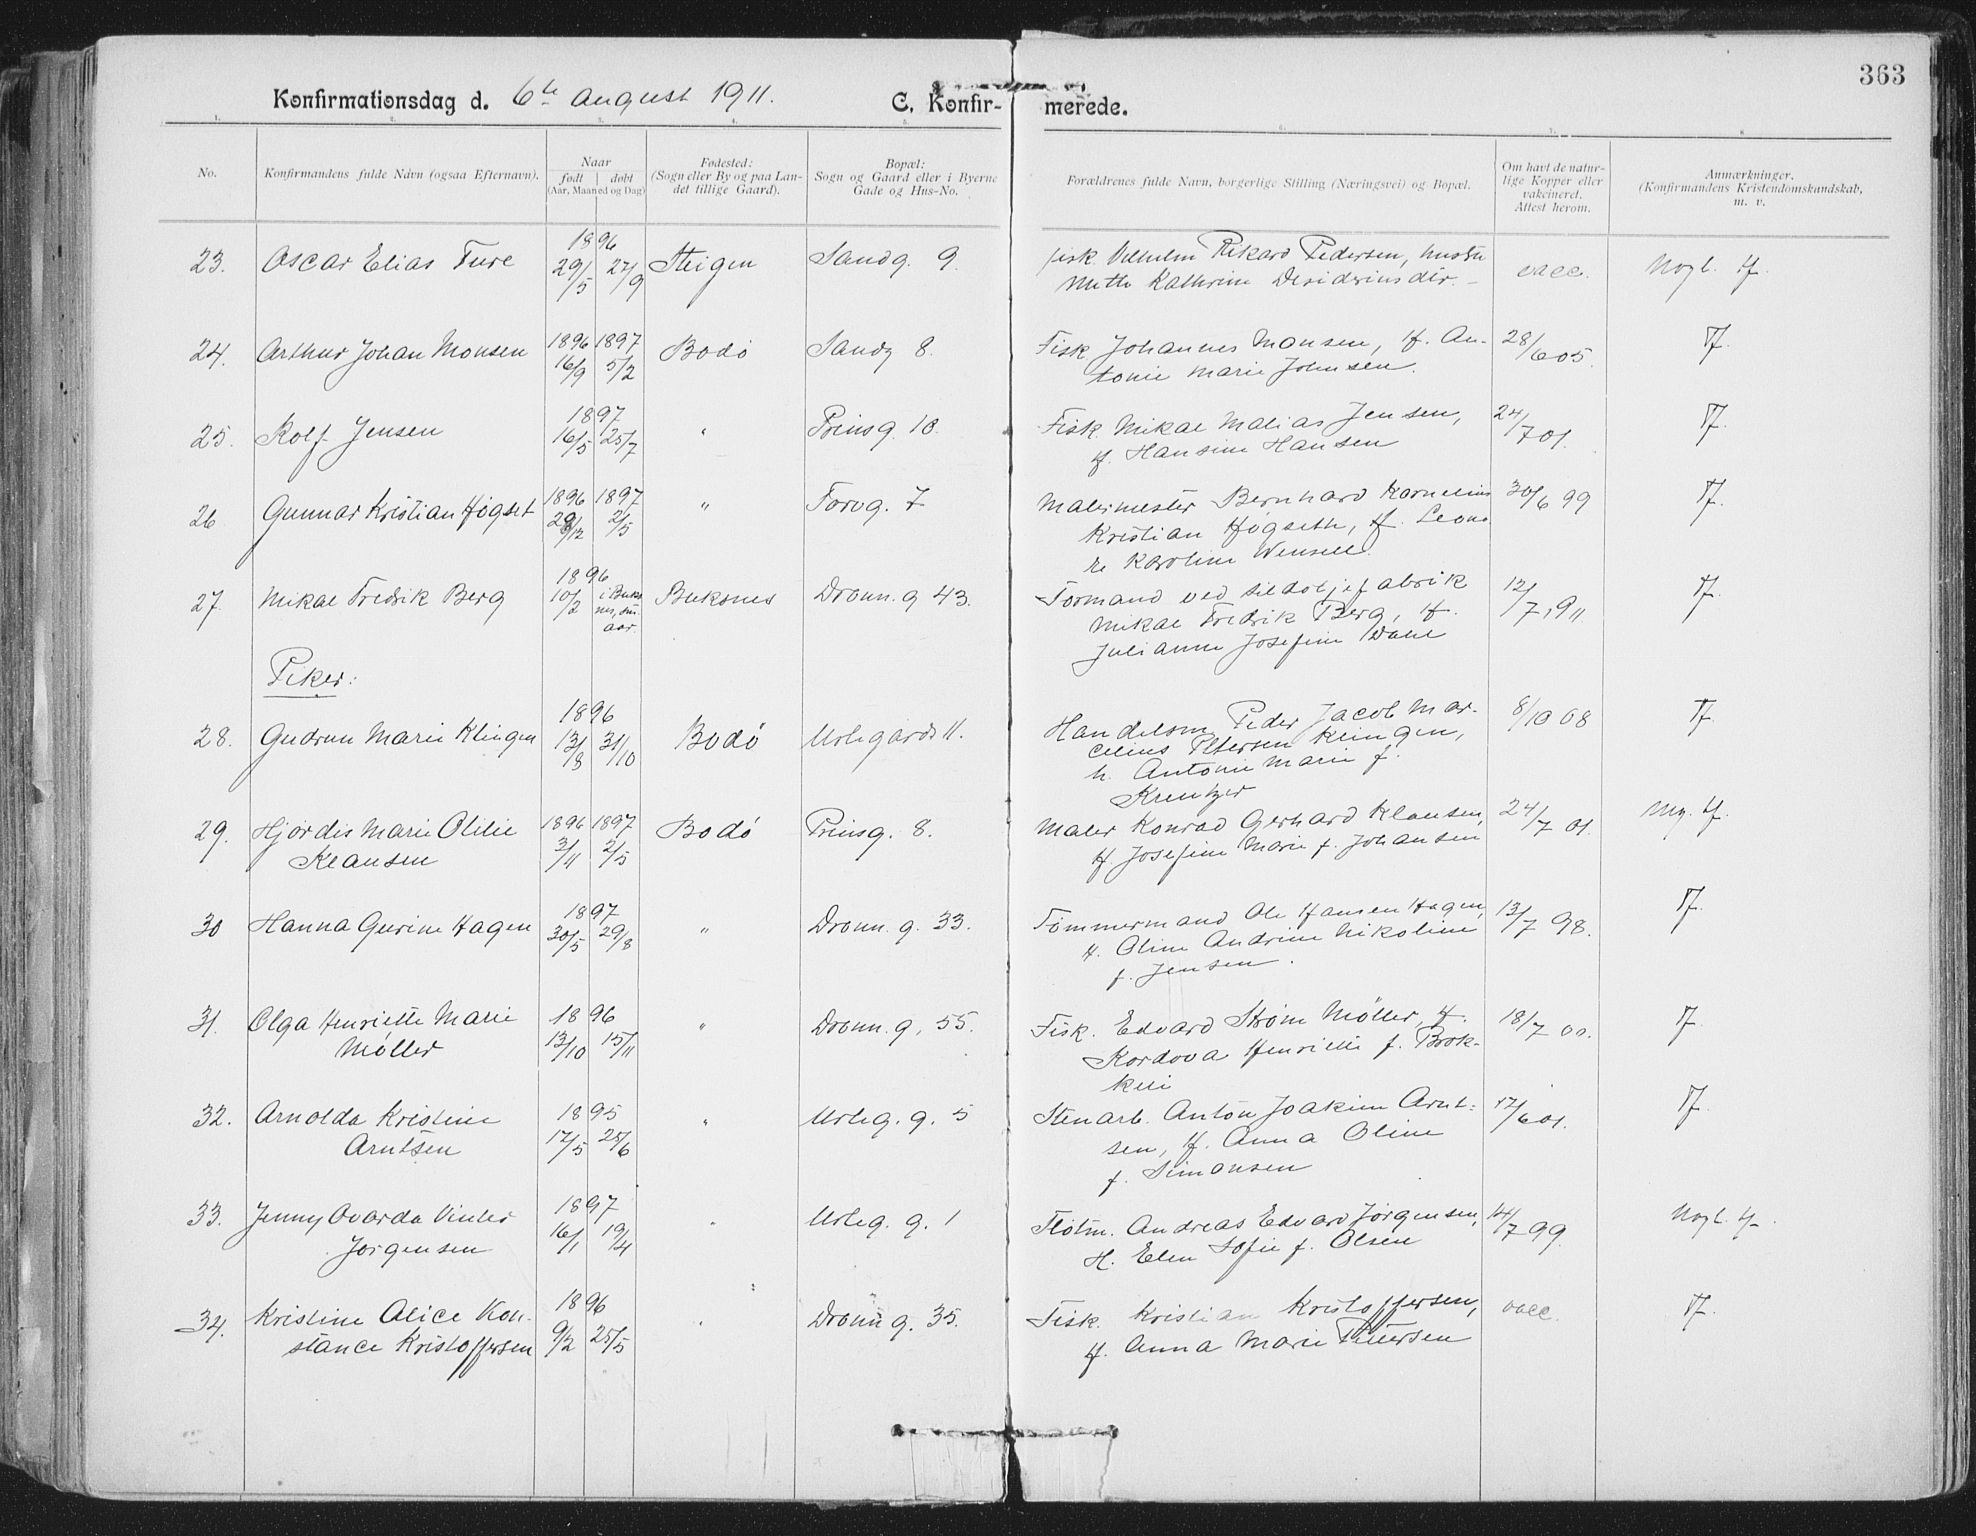 363
Konfirmationsdag d. 6te August 1911. C. Konfir- merede.
1. 2. 3. 4. 5. 6. 7. 8.
No.
Konfirmandens fulde Navn (ogsaa Efternavn).
Naar
født døbt
(Aar, Maaned og Dag)
Fødested:
(Sogn eller By og paa Lan-
det tillige Gaard).
Bopæl:
Sogn og Gaard eller i Byerne
Gade og Hus-No.
Forældrenes fulde Navn, borgerlige Stilling (Næringsvei) og Bopæl.
Om havt de natur-
lige Kopper eller
vakcineret.
Attest herom.
Anmærkninger.
(Konfirmandens Kristendomskundskab,
m. v.
1896
23. Oscar Elias Ture 29/5 27/9 Steigen Sandg. 9. Fisk. Vilhelm Rikard Pedersen, hustru vacc.
Mette Kathrine Desideriusdtr.
24. Arthur Johan Monsen 1896 1897 Bodø Sandg 8. Fisk Johannes Monsen, H. An- 28/6 05.
16/9 5/2 tonie Marie Johnsen.
1897
25. Rolf Jensen 16/5 25/7 " Prinsg. 10. Fisk. Mikal Malias Jensen, 24/7 01.
H. Hansine Hansen
26 Gunnar Kristian Høgset 1896 1897 " Torvg. 7 Malermester Bernhard Kornelius 30/6 99
29/12 2/5 Kristian Høgseth, H. Leono
re Karoline Wensell.
1896
27. Mikal Fredrik Berg 10/2 i Buks Buksnes Dronn. g 43. Formand ved sildoljefabrik 12/7 1911
nes, sm. Mikal Fredrik Berg, H.
aar. Julianne Josefine Dahl
Piker:
1896
28. Gudrun Marie Klingen 13/8 31/10 Bodø Urtegårds 11. Handelsm. Peder Jacob Mar- 8/10 08
celius Petersen Klingen,
h. Antonie Marie f.
Kreutzer
29. Hjørdis Marie Otilie 1896 1897 Bodø Prinsg. 8. Maler Konrad Gerhard Klausen, 24/7 01.
Klausen 3/11 2/5 H. Josefine Marie f. Johansen
1897
30 Hanna Gurine Hagen 30/5 29/8 " Dronn. g. 33. Tømmermand Ole Hansen Hagen, 13/7 98.
H. Oline Andrine Nikoline
f. Jensen.
31. Olga Henriette Marie 1896 " Dronn. g. 55. Fisk. Edvard Strøm Møller, H. 18/7 00.
Møller 13/10 15/11 Kordova Henriette f. Brok-
32. Arnolda Kristine 1895 " Urteg. g. 5 Stenarb. Anton Joakim Arnt- 17/6 01.
Arntsen 17/5 25/6 sen, H. Anna Oline
f. Simonsen
33. Jenny Ovarda Vinter 1897 " Urteg. g. 1 Flotm. Andreas Edvard Jørgensen, 14/7 99.
Jørgensen 16/1 19/4 H. Elen Sofie f. Olsen
34. Kristine Alice Kon- 1896 " Dronn g. 35. Fisk. Kristian Kristoffersen, vacc.
stance Kristoffersen 9/2 25/5 H. Anna Marie Pettersen